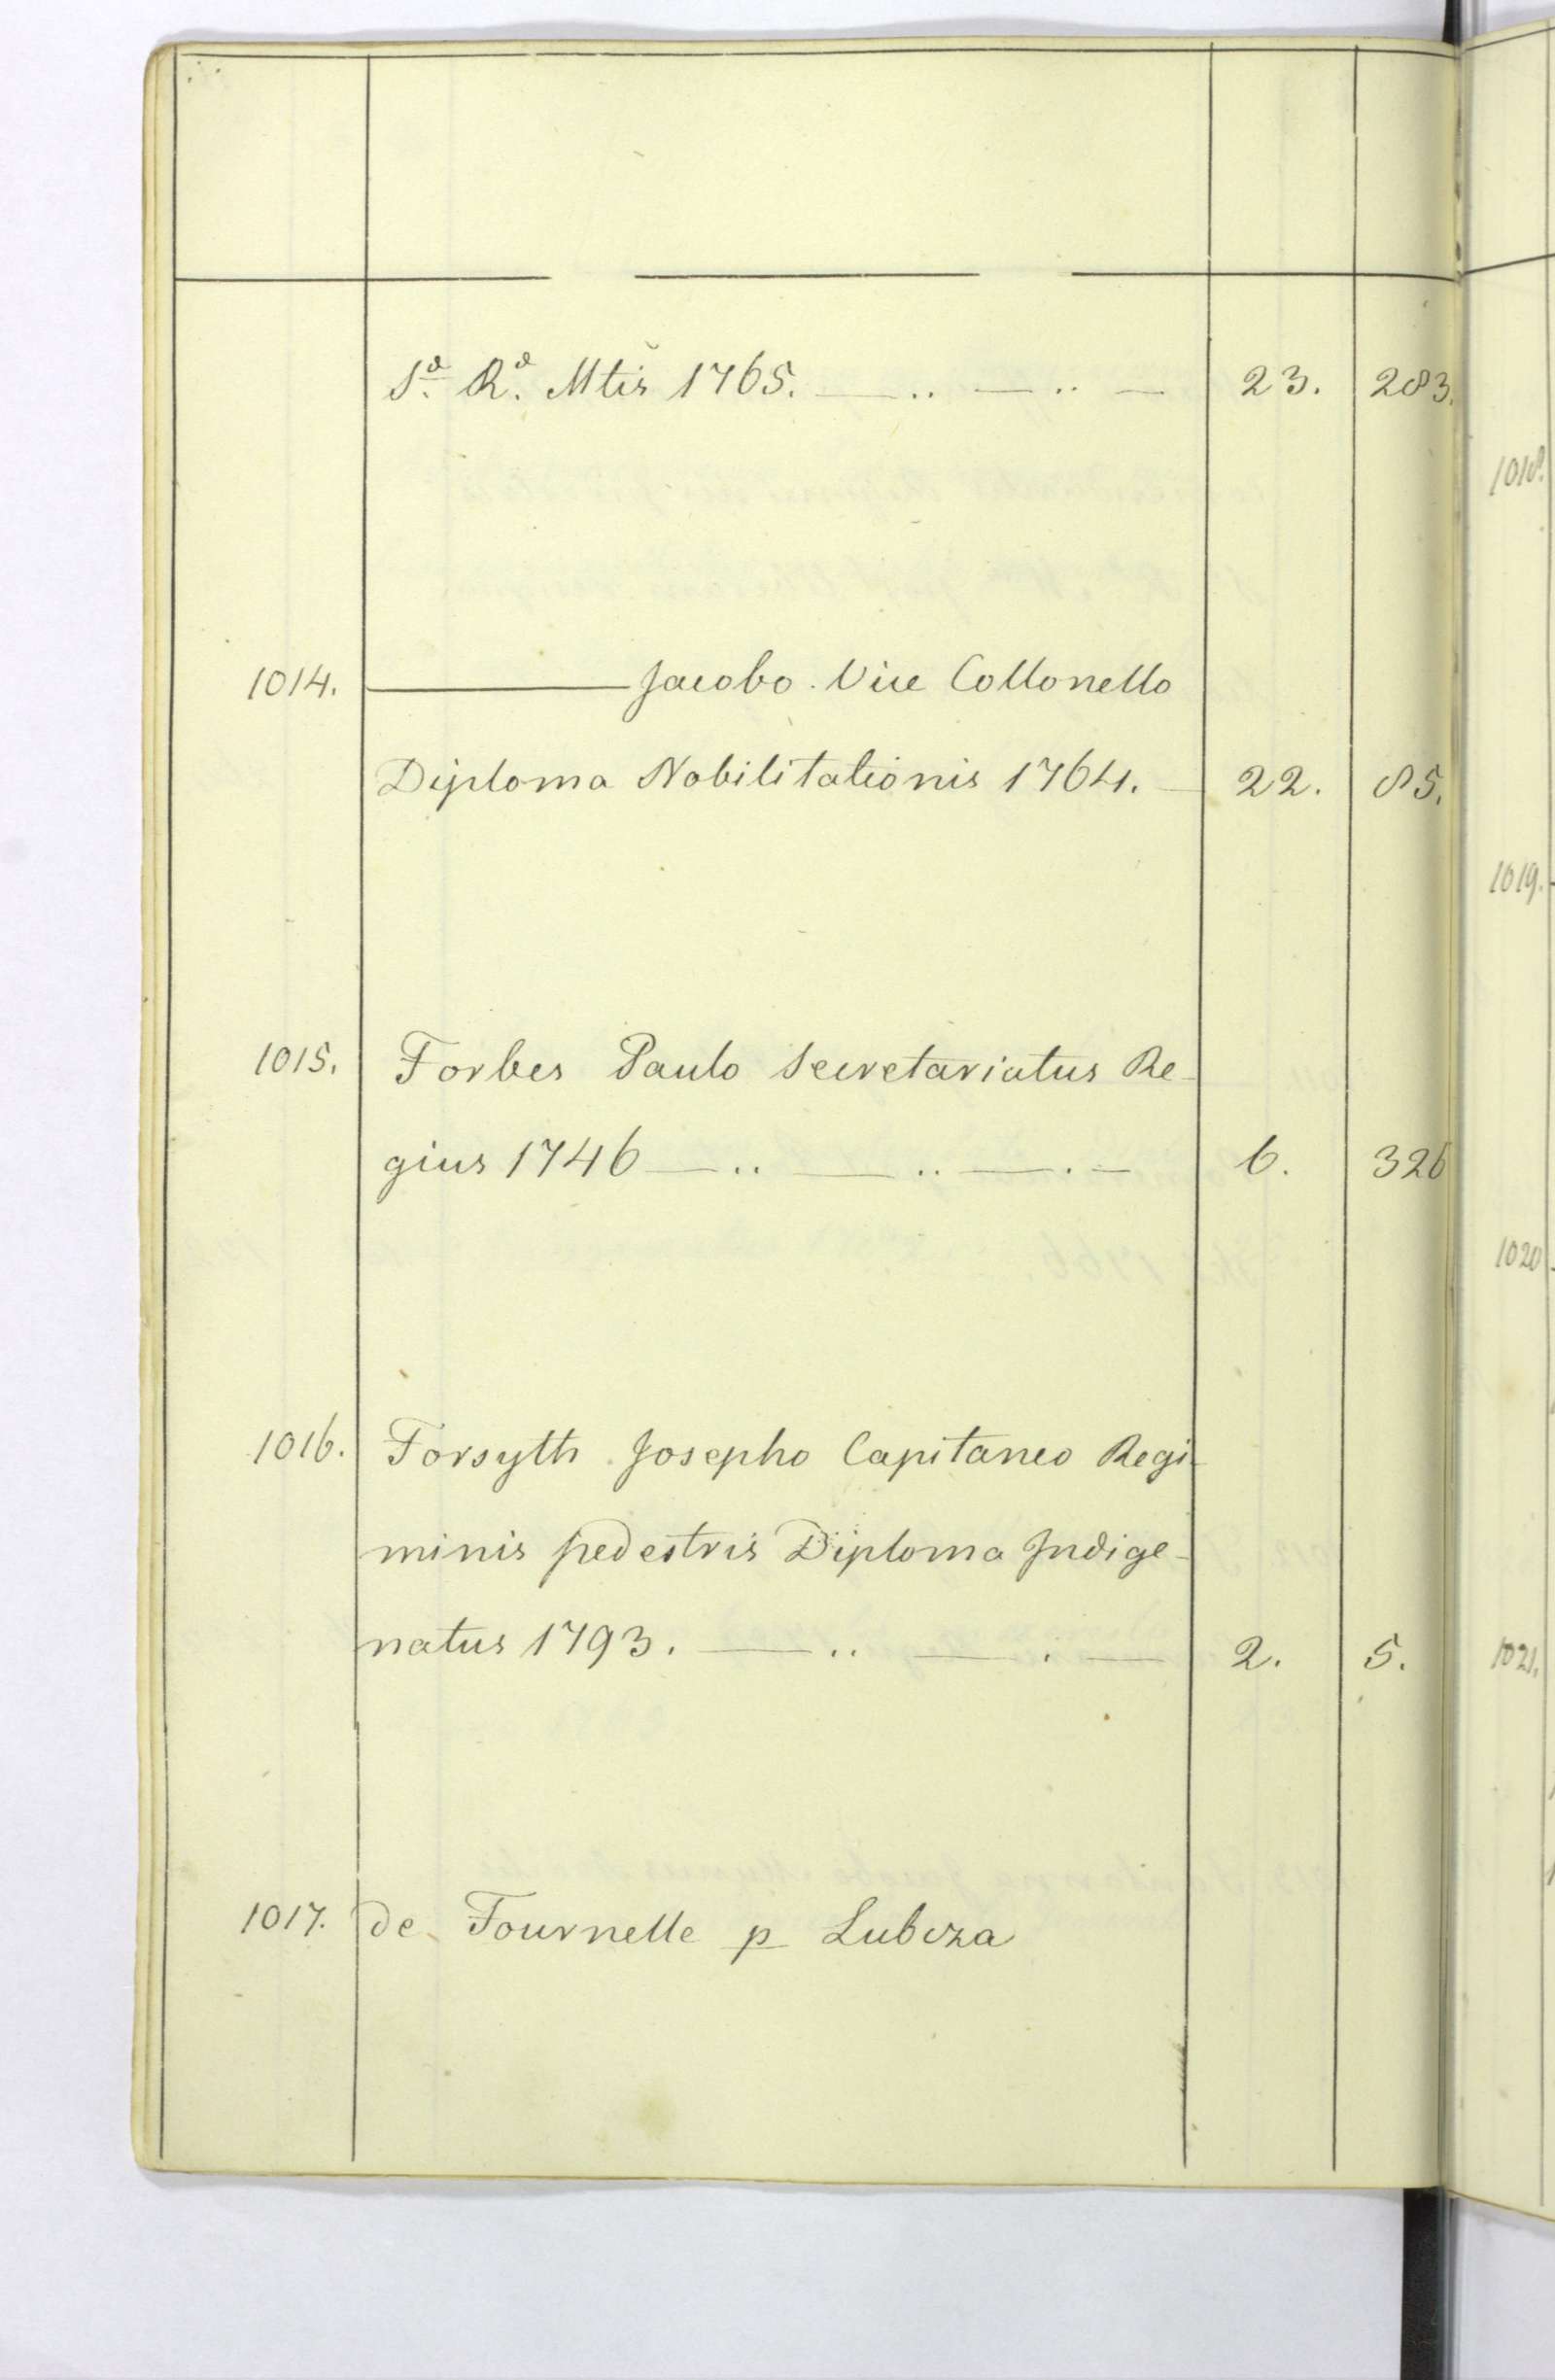 Sᵃ. Rᵃ. Mtis 1765. — .. — .. — 23. 283.
1014. ——— Jacobo Vice Collonello
Diploma Nobilitationis 1764. — 22. 85.
1015. Forbes Paulo Secretariatus Re-
gius 1746 — .. — .. — . — 6. 326
1016. Forsyth Josepho Capitaneo Regi-
minis pedestris Diploma Indige-
natus 1793. — .. — . — 2. 5.
1017. de Fournelle p Lubcza
1018.
1019.
1020
1021.